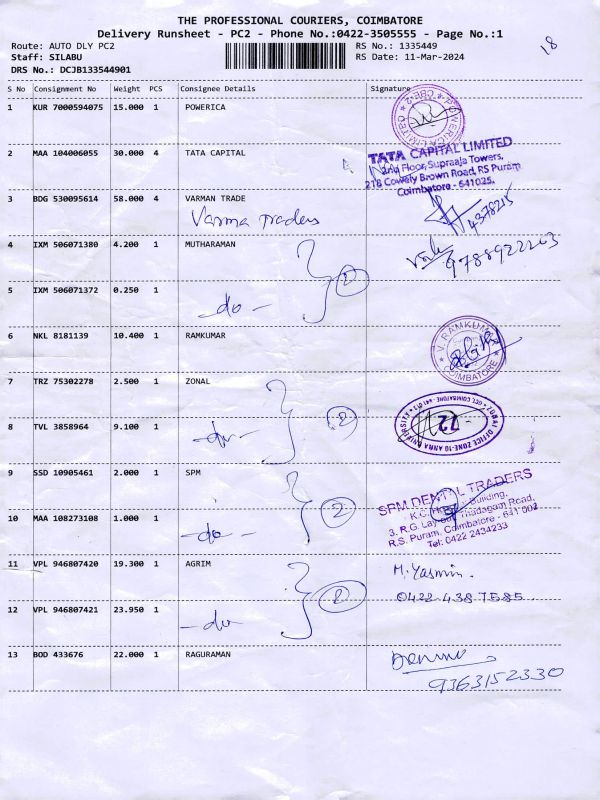 THE PROFESSIONAL COURIERS, COIMBATORE
Delivery Runsheet - PC2 - Phone No.:0422-3505555 - Page No.:1
Route: AUTO DLY PC2 RS No.: 1335449
Staff: SILABU RS Date: 11-Mar-2024
DRS No.: DCJB133544901
18
S No Consignment No Weight PCS Consignee Details Signature
1 KUR 7000594075 15.000 1 POWERICA
POWERICA LIMITED
2 MAA 104006055 30.000 4 TATA CAPITAL
TATA CAPITAL LIMITED
Floor, Supraaja Towers,
218 Cowely Brown Road, RS Puram
Coimbatore - 641025.
3 BDG 530095614 58.000 4 VARMAN TRADE
Varma Traders
4378215
4 IXM 506071380 4.200 1 MUTHARAMAN
9788922263
5 IXM 506071372 0.250 1
-do- 2
6 NKL 8181139 10.400 1 RAMKUMAR
V. RAMKUMAR
COIMBATORE
7 TRZ 75302278 2.500 1 ZONAL
8 TVL 3858964 9.100 1
-do- 2
ZONAL OFFICE ZONE-10 ANNA UNIVERSITY
72
9 SSD 10905461 2.000 1 SPM
SPM DENTAL TRADERS
Building,
3, R.G. Layout, Thadagam Road,
R.S. Puram, Coimbatore - 641 002
Tel: 0422 2434233
10 MAA 108273108 1.000 1
-do- 2
11 VPL 946807420 19.300 1 AGRIM
M. Yasmin.
0422 438 7585
12 VPL 946807421 23.950 1
-do- 2
13 BOD 433676 22.000 1 RAGURAMAN
9363152330